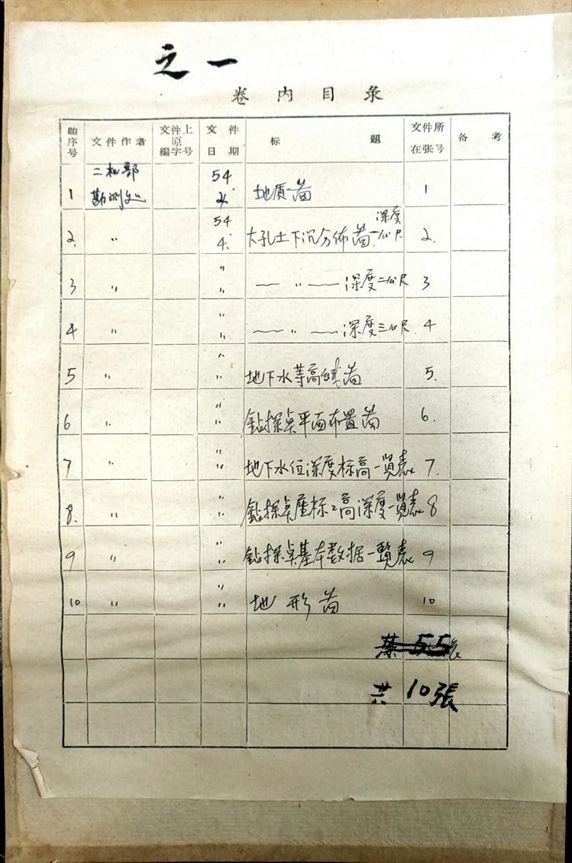 之一
卷内目录
顺序号 文件作者 文件上原编字号 文件日期 标题 文件所在张号 备考
1 二机部 54 地质畄 1
2. 〃 54 4. 大孔土下沉分佈畄 深度一公尺 2.
3 〃 〃 〃 — 〃 — 深度二公尺 3
4 〃 〃 〃 — 〃 — 深度三公尺 4
5 〃 〃 〃 地下水等高线畄 5.
6 〃 〃 〃 鉆探点平面布置畄 6.
7 〃 〃 〃 地下水位深度标高一覧表 7.
8. 〃 〃 〃 鉆探点座标标高深度一覧表 8
9 〃 〃 〃 鉆探点基本数据一覧表 9
10 〃 〃 〃 地形畄 10
共55张
共10張